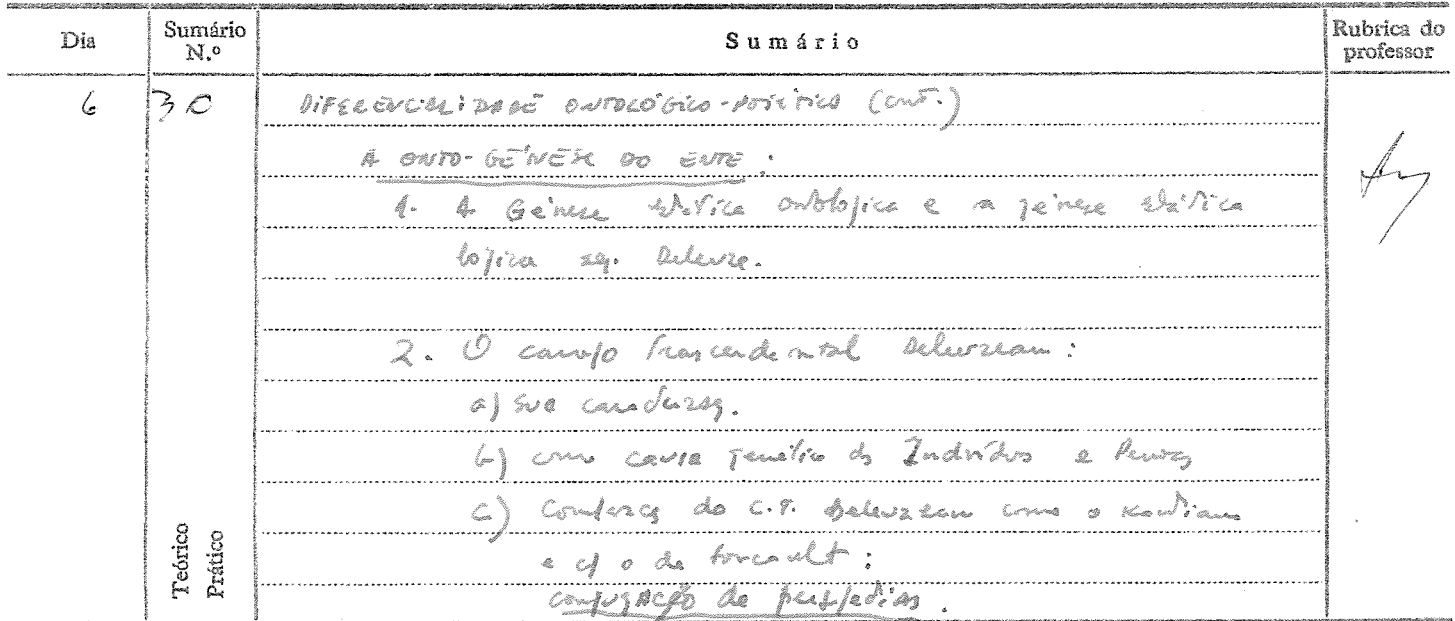 Dia Sumário N.º Sumário Rubrica do professor
6 30 DIFERENCIALIDADE ONTOLÓGICO-POIÉTICA (cont.)
A ONTO-GÉNESE DO ENTE :
1. A Génese estática ontológica e a génese estática
lógica seg. Deleuze.
2. O campo transcendental deleuzeano :
a) Sua caracterizaç.
b) como causa genética ds Indivíduos e Pessoas
c) Confronto do C.T. deleuzeano com o Kantiano
e c/ o de Foucault :
conjugação de perspectivas.
Teórico
Prático